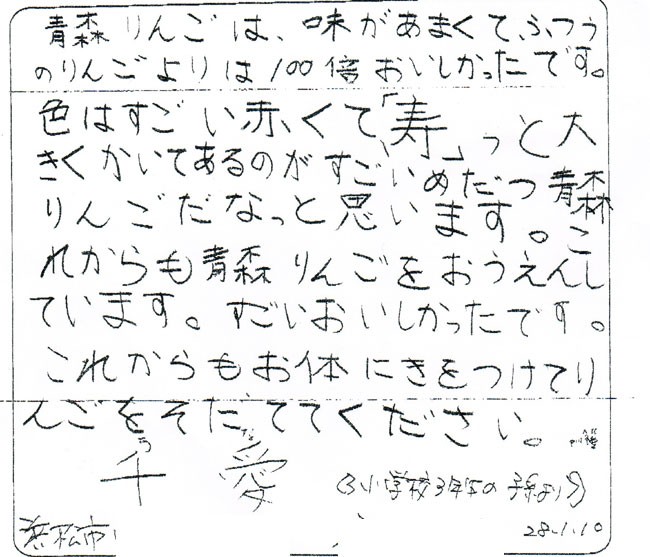 青森りんごは、味があまくて、ふつう
のりんごよりは100倍おいしかったです。
色はすごい赤くて、「寿」っと大
きくかいてあるのがすごいめだつ青森
りんごだなっと思います。こ
れからも青森りんごをおうえんし
ています。すごいおいしかったです。
これからもお体にきをつけてり
んごをそだててください。
千愛
小学校3年生の子供より
浜松市
28.1.10